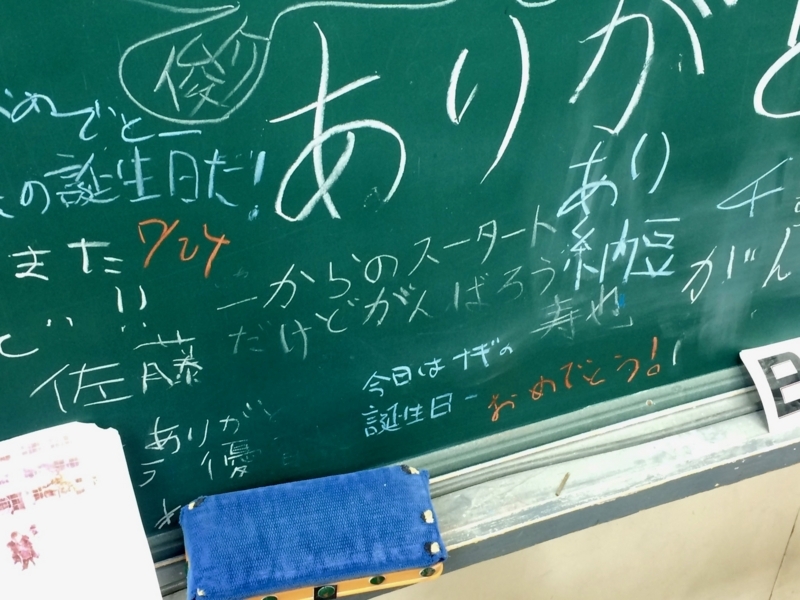 あり が
めでとー
の誕生日だ!
7/24
きた!!
一からのスータート
だけどがんばろう
寿也
あり
納豆
千
がん
ど‼
佐藤
今日はナギの
誕生日ー おめでとう!!
ありがと
優